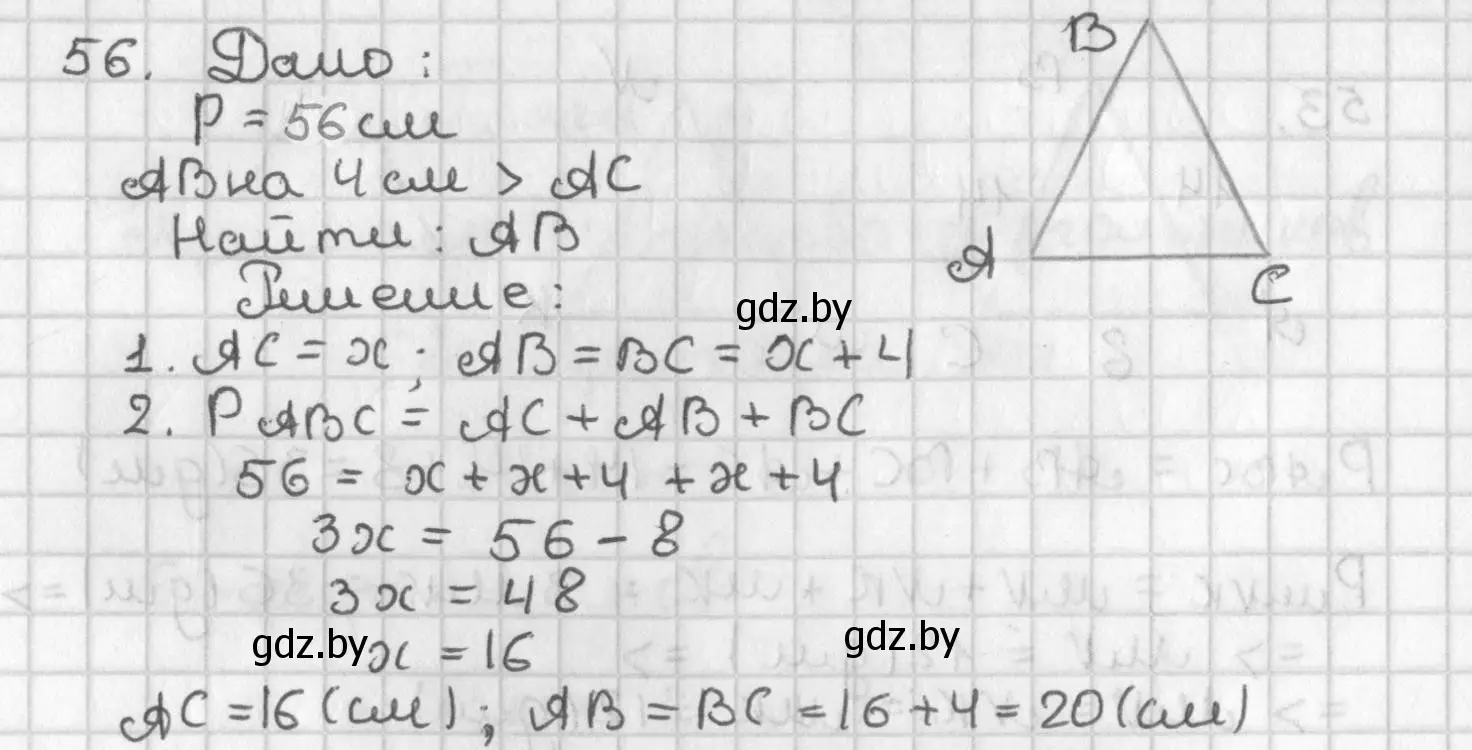 56. Дано:
P = 56 см
AB на 4 см > AC
Найти: AB
Решение:
1. AC = x; AB = BC = x + 4
2. P ABC = AC + AB + BC
56 = x + x + 4 + x + 4
3x = 56 - 8
3x = 48
x = 16
AC = 16 (см); AB = BC = 16 + 4 = 20 (см)
B
A
C
gdz.by
gdz.by
gdz.by